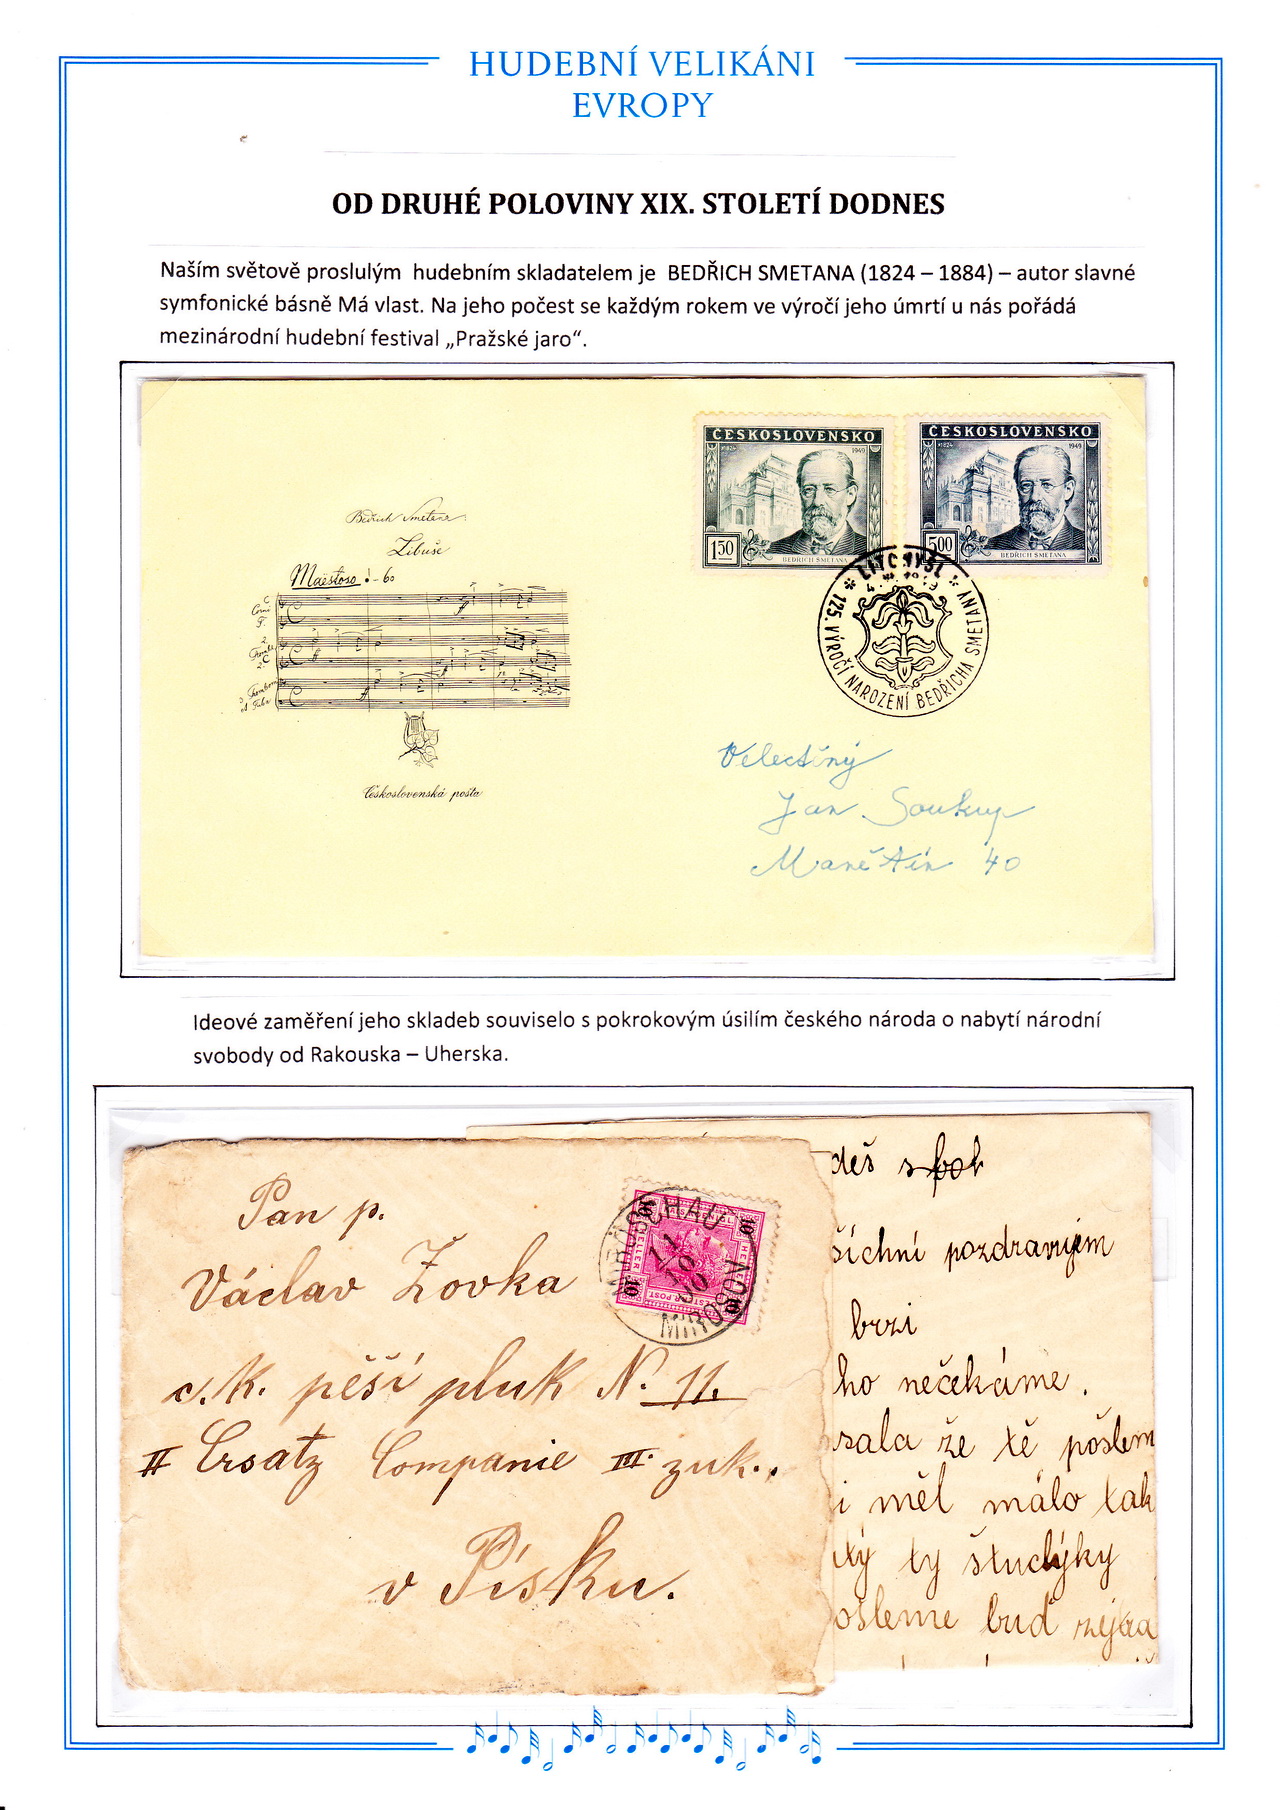 HUDEBNÍ VELIKÁNI
EVROPY
OD DRUHÉ POLOVINY XIX. STOLETÍ DODNES
Naším světově proslulým hudebním skladatelem je BEDŘICH SMETANA (1824 – 1884) – autor slavné
symfonické básně Má vlast. Na jeho počest se každým rokem ve výročí jeho úmrtí u nás pořádá
mezinárodní hudební festival „Pražské jaro“.
ČESKOSLOVENSKO
*1824 1949
1 50
BEDŘICH SMETANA
ČESKOSLOVENSKO
*1824 1949
5 00
BEDŘICH SMETANA
Bedřich Smetana
Libuše
Maestoso - 60
LITOMYŠL
125. VÝROČÍ NAROZENÍ BEDŘICHA SMETANY
Československá pošta
Velectěný
Jan Soukup
Manětín 40
Ideové zaměření jeho skladeb souviselo s pokrokovým úsilím českého národa o nabytí národní
svobody od Rakouska – Uherska.
Pan p.
Václav Zovka
c. k. pěší pluk N. 11.
II Ersatz Companie III. zuk.
v Písku.
MIRÖSCHAU
11
10
00
MIROSOV
10 HELLER 10
šichni pozdravujem
brzi
ho nečekáme.
sala že tě pošlem
i měl málo tak
ty študýky
ošleme buď